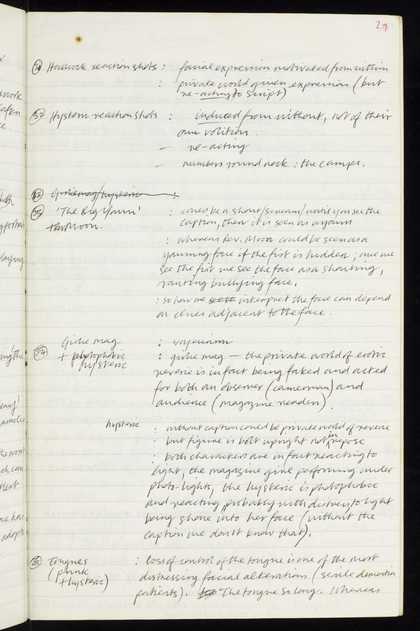 29
Hancock reaction shots : facial expression motivated from within
: private world given expression (but
re-acting to script)
Hysteric reaction shots : induced from without, not of their
own volition.
— re-acting
— numbers round neck : the camps.
'The Big Yawn' : could be a shout/scream/until you see the
caption, then it is seen as a yawn
: whereas Rev. Moon could be seen as a
yawning face if the fist is hidden, once we
see the fist we see the face as a shouting,
ranting bullying face.
: so how we interpret the face can depend
on clues adjacent to the face.
Girlie mag. : voyeurism
+ photophobic : girlie mag — the private world of erotic
hysteric
reverie is in fact being faked and acted
for both an observer (cameraman) and
audience (magazine readers).
hysteric : without caption could be private world of reverie
: but figure is bolt upright not in repose
: both characters are in fact reacting to
light, the magazine girl performing under
photo-lights, the hysteric is photophobic
and reacting probably with distress to light
being shone into her face (without the
caption we don't know that).
Tongues : loss of control of the tongue is one of the most
(punk distressing facial alterations (senile dementia
+ hysteric) patients). The tongue so long. Whereas